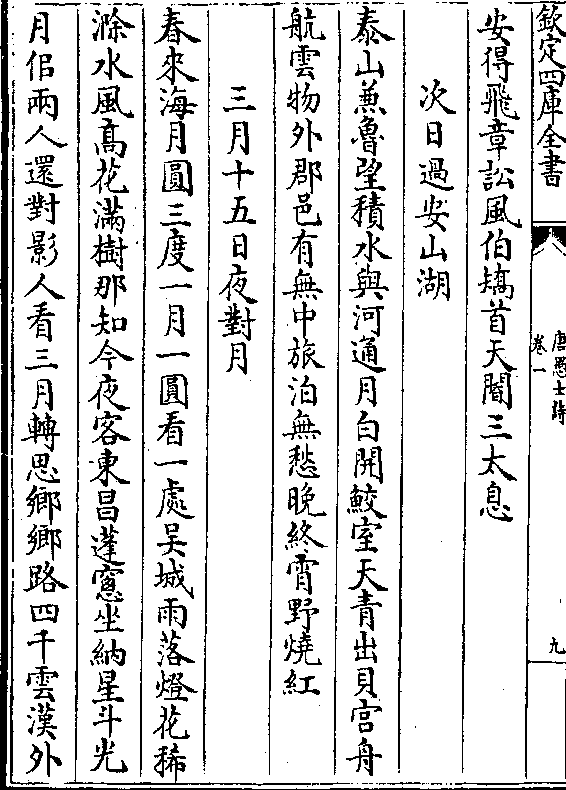 欽定四庫全書
唐愚士詩
卷一
九
安得飛章訟風伯矯首天閽三太息
次日過安山湖
泰山蒹魯望積水與河通月白開鮫室天青出貝宫舟
航雲物外郡邑有無中旅泊無愁晚終宵野燒紅
三月十五日夜對月
春來海月圓三度一月一圓看一處吴城雨落燈花稀
滁水風高花滿樹那知今夜客東昌蓬窻坐納星斗光
月佀兩人還對影人看三月轉思鄉鄉路四千雲漢外